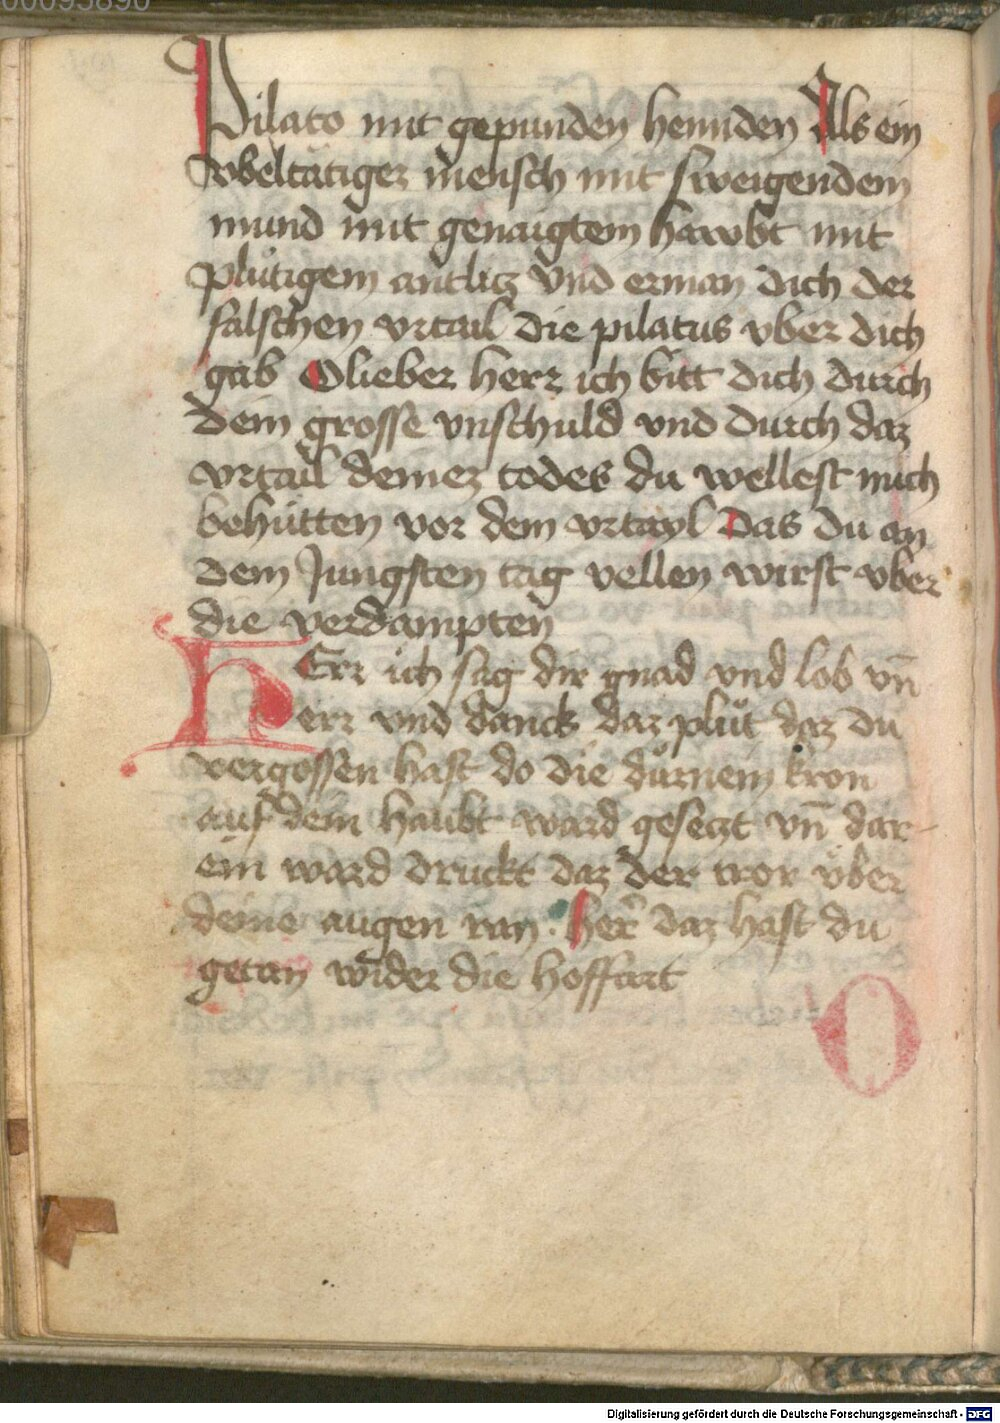 00095890
Pilato mit gepunden hennden Als ein
vbeltätiger mensch mit sweigendem
mund mit genaigtem hawbt mit
plütigem antlicz vnd erman dich der
falschen vrtail die pilatus vber dich
gab O lieber herr ich bitt dich durch
dein grosse vnschuld vnd durch daz
vrtail deinez todes du wellest mich
behütten vor dem vrtayl Das du an
dem Jungsten tag vellen wirst vber
die verdampten
HErr ich sag dir gnad vnd lob vn̄
err vnd danck daz plüt daz du
vergossen hast do die dürnein kron
auf dein haubt ward geseczt vn̄ dar-
ein ward druckt daz der tror vber
deine augen ran . herr daz hast du
getan wider die hoffart
Digitalisierung gefördert durch die Deutsche Forschungsgemeinschaft - DFG